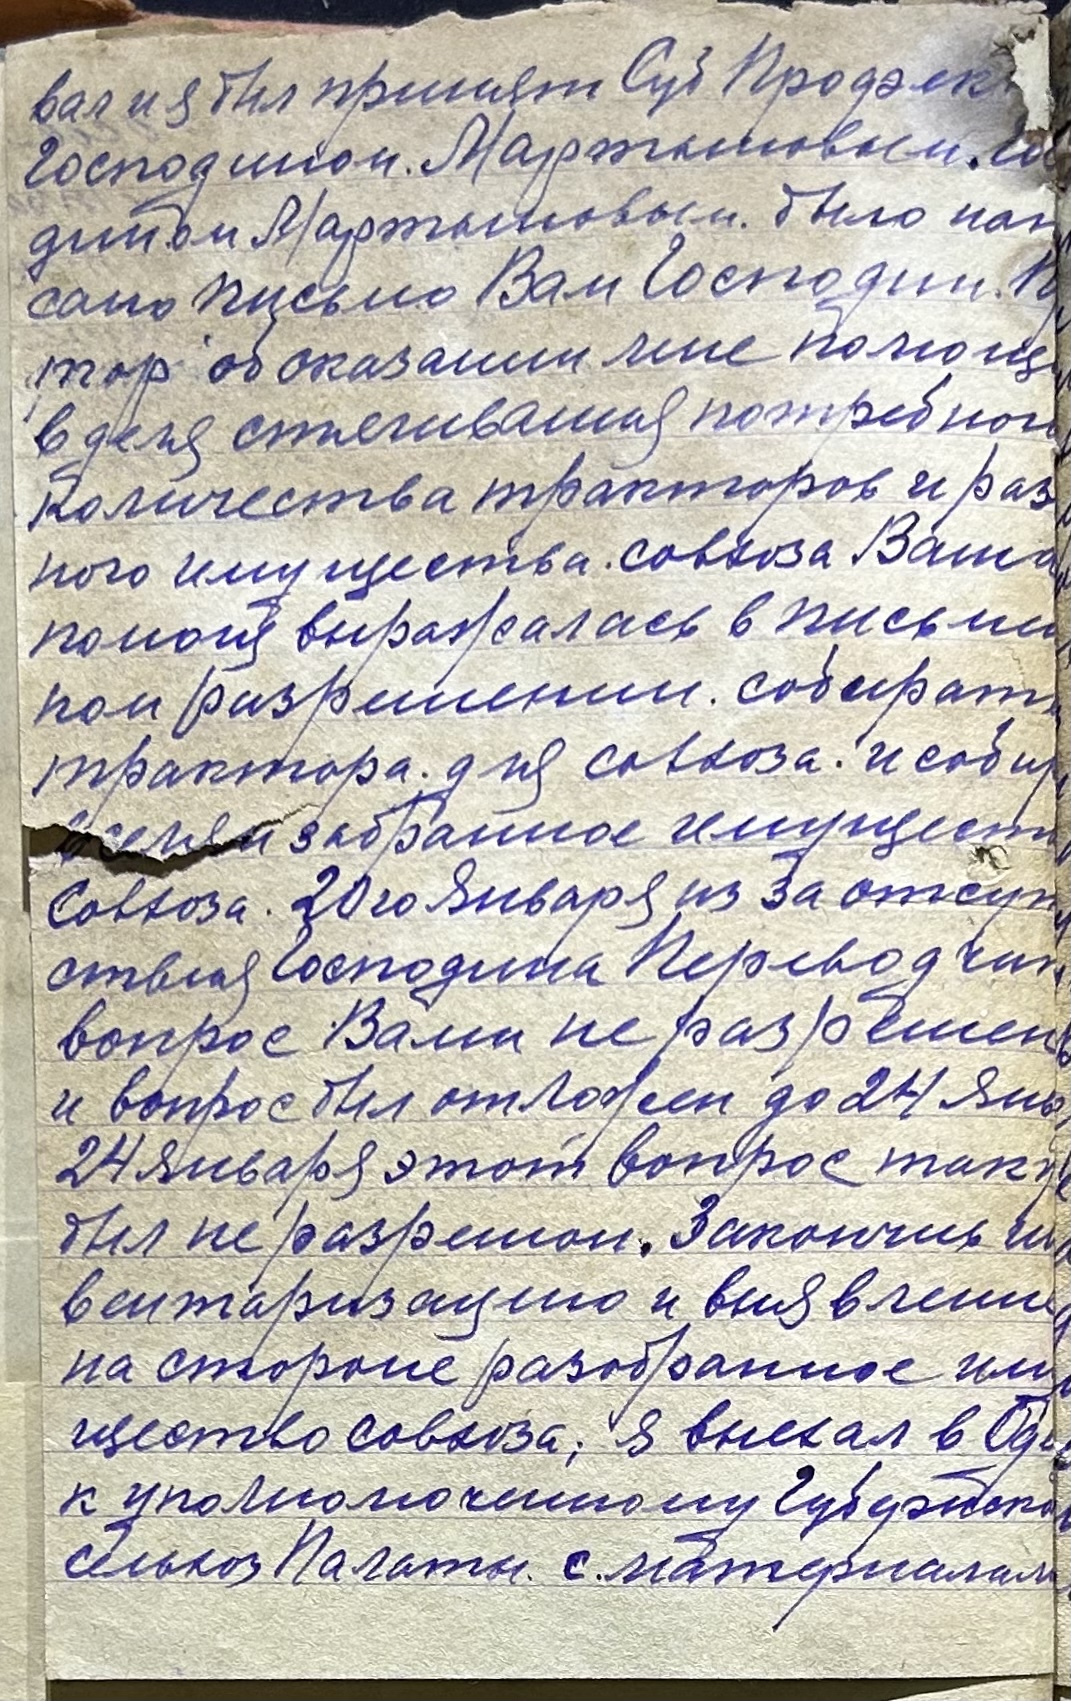 вал и я был принят Суб Продэк
Господином. Мартыновым. Го
дином Мартыновым. было нап
сано письмо Вам Господин. П
тор об оказании мне помощ
в деля стягивания потребног
Количества тракторов и раз
ного имущества. совхоза Ваша
помощ выражалась в письмен
ном разрешении. собират
трактора. для совхоза. и собир
забранное имущест
Совхоза. 20го Января из за отсут
ствия Господина Переводчик
вопрос Вами не разрешен
и вопрос был отложен до 24 Янв
24 Января этот вопрос такж
был не разрешон. Закончив ин
вентаризацию и выявление
на стороне разобранное иму
щество совхоза, я выехал в Оде
к уполномоченному Губ
сельхоз Палаты. с. материалам